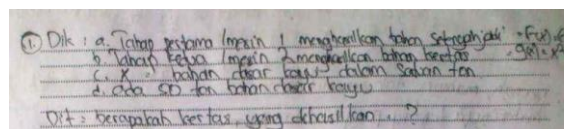 ① Dik : a. Tahap pertama (mesin 1 menghasilkan bahan setengah jadi = F(x)
b. Tahap kedua (mesin 2 menghasilkan bahan kertas = g(x) = x²
c. x = bahan dasar kayu dalam satuan ton
d. ada 50 ton bahan dasar kayu
Dit = berapakah kertas yang dihasilkan . ?